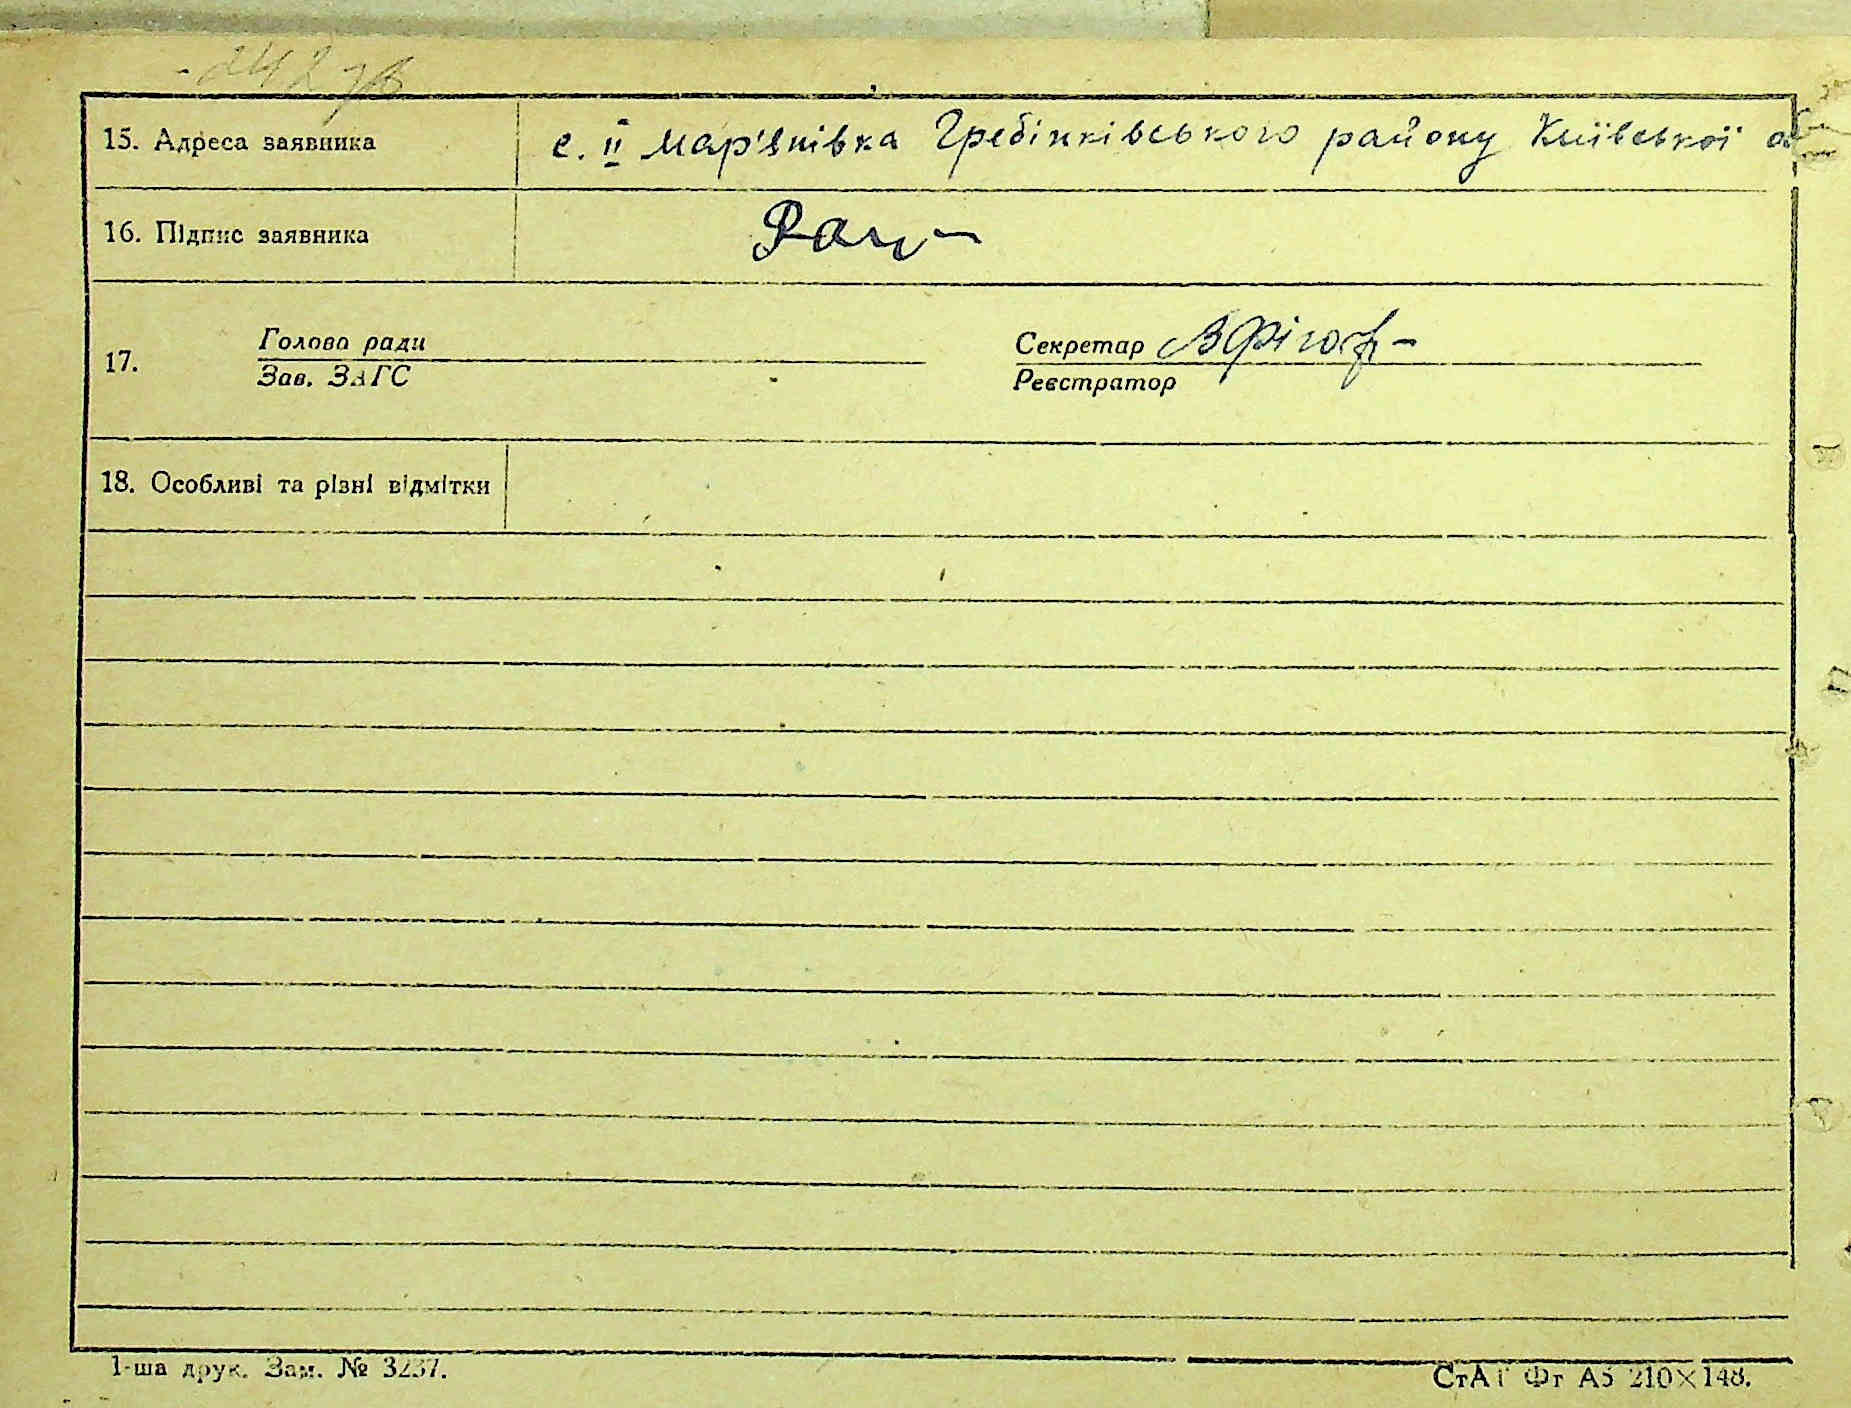 242 зв
15. Адреса заявника с. ІІ Мар'янівка Гребінківського району Київської о
16. Підпис заявника
17. Голова ради Секретар
Зав. ЗАГС Реєстратор
18. Особливі та різні відмітки
1-ша друк. Зам. № 3237.
СтАТ Фт А5 210×148.